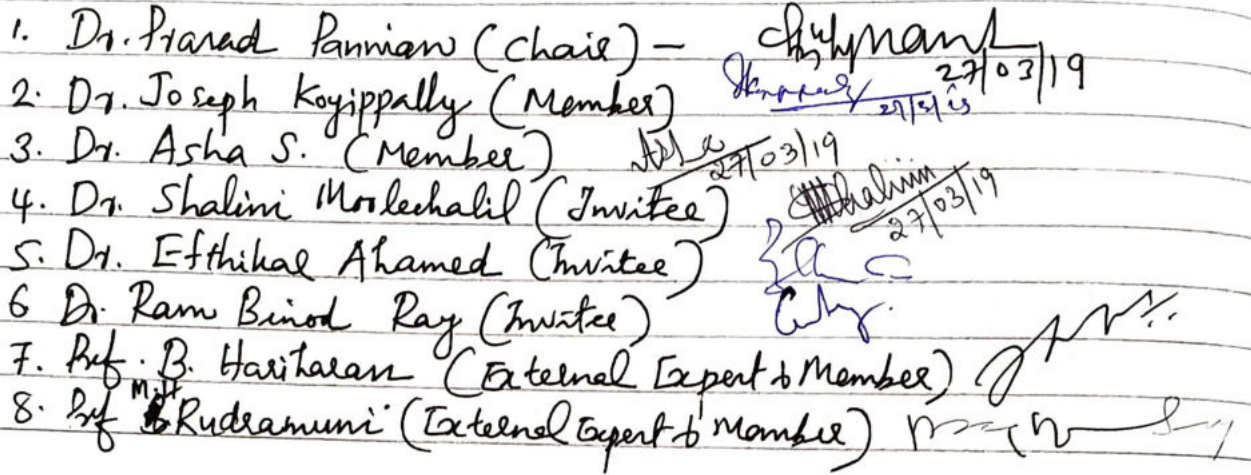 1. Dr. Prasad Pannian (Chair) - 27/03/19
2. Dr. Joseph Koyippally (Member) 27/3/19
3. Dr. Asha S. (Member) Asha 27/03/19
4. Dr. Shalini Moolechalil (Invitee) Shalini 27/03/19
5. Dr. Efthikar Ahamed (Invitee)
6 Dr. Ram Binod Ray (Invitee)
7. Prof. B. Hariharan (External Expert & Member)
8. Prof Rudramuni (External Expert & Member)